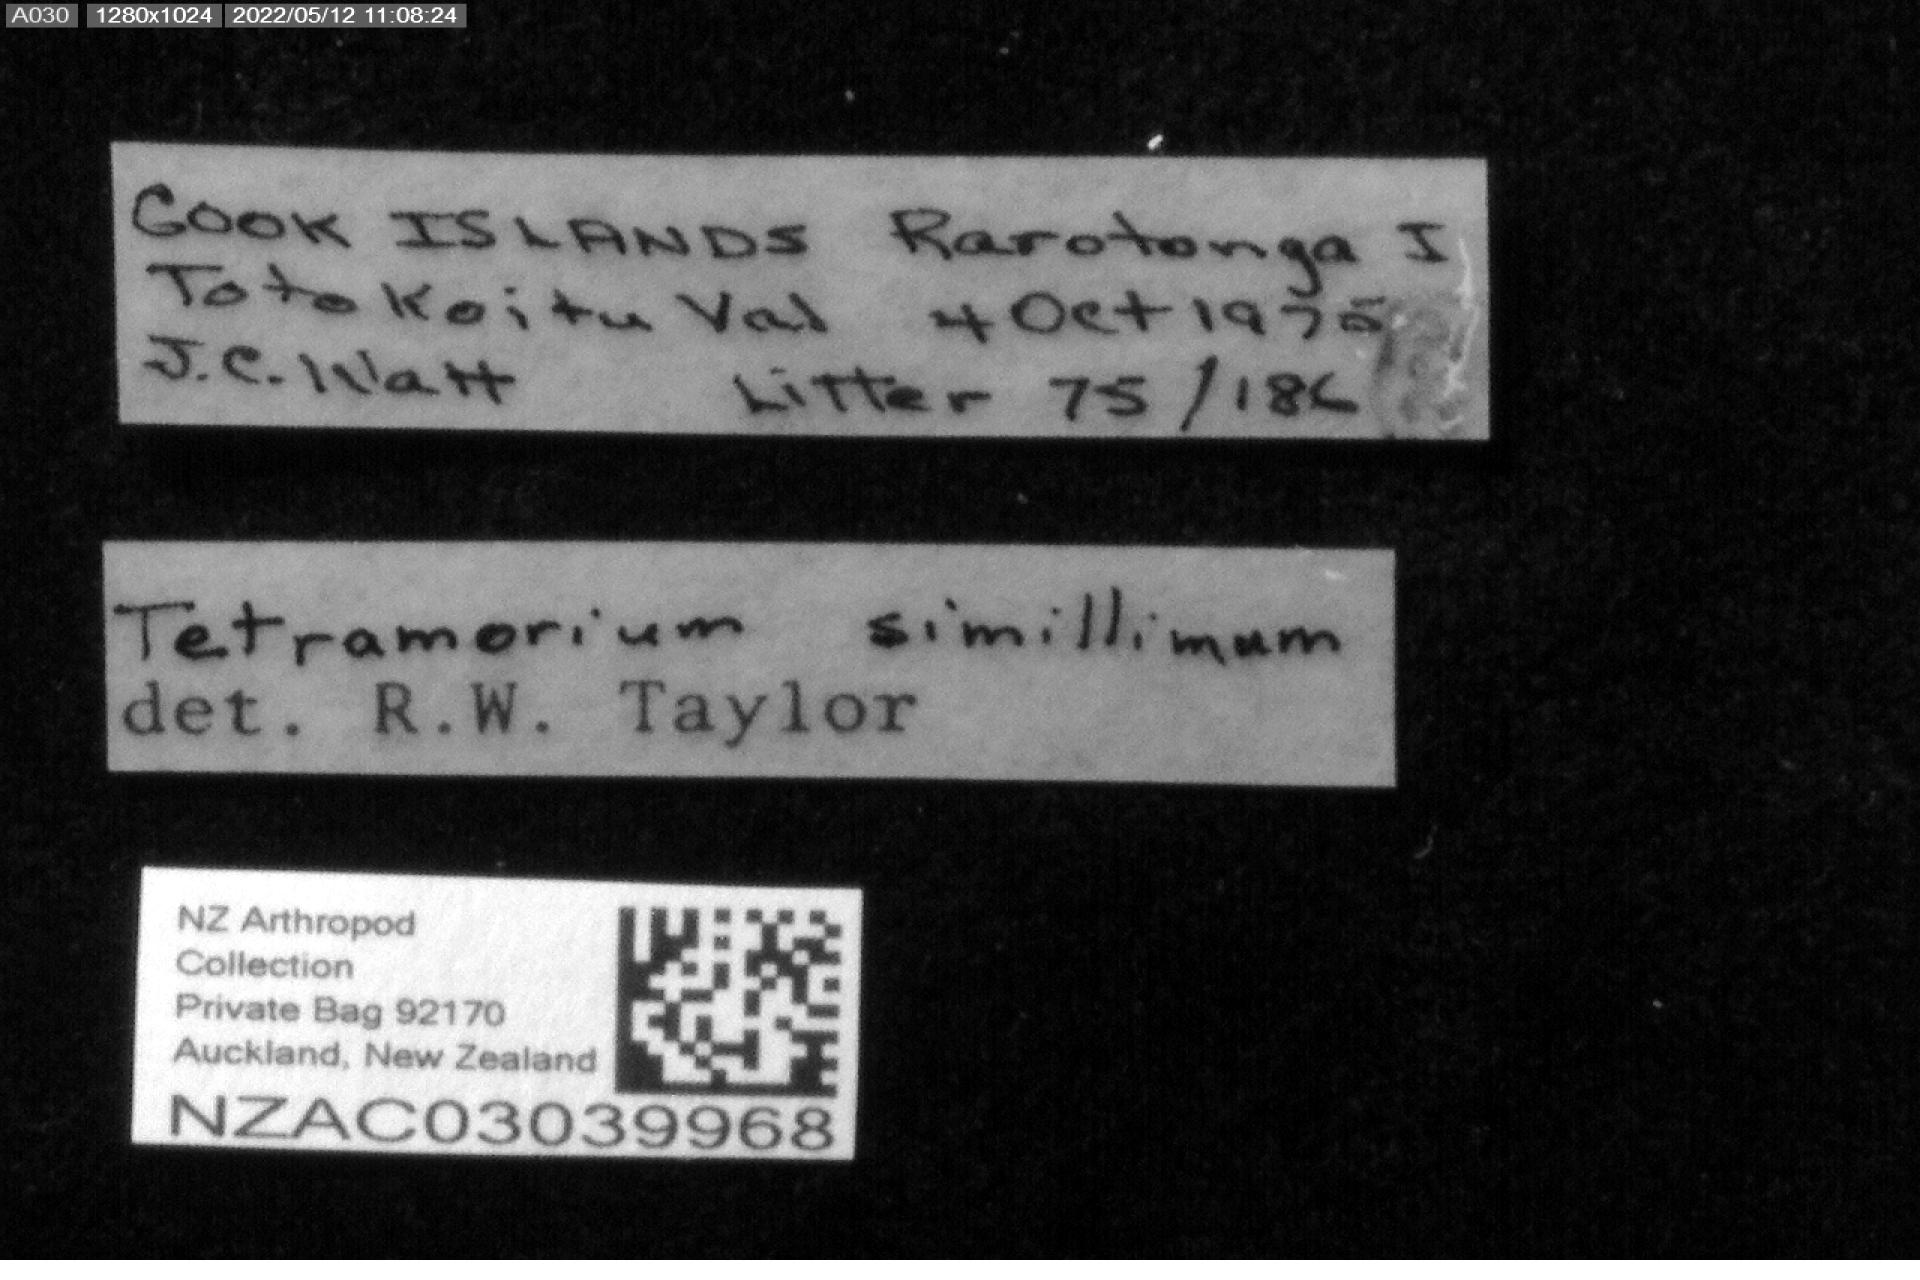 A030 1280x1024 2022/05/12 11:08:24
COOK ISLANDS Rarotonga I
Totokoitu Val 4 Oct 1975
J.C. Watt Litter 75/186
Tetramorium simillimum
det. R.W. Taylor
NZ Arthropod
Collection
Private Bag 92170
Auckland, New Zealand
NZAC03039968